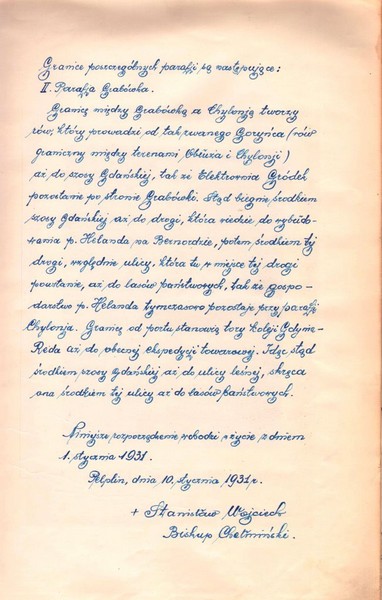 Granice poszczególnych parafji są następujące:
II. Parafja Grabówka.
Granicę między Grabówką a Chylonją tworzy
rów, który prowadzi od tak zwanego Goryńca (rów
graniczny między terenami Obłuża i Chylonji)
aż do szosy Gdańskiej, tak że Elektrownia Gródek
pozostanie po stronie Grabówki. Stąd biegnie środkiem
szosy gdańskiej aż do drogi, która wiedzie do wybudo-
wania p. Helanda na Bernordzie, potem środkiem tej
drogi, względnie ulicy, która tu w miejsce tej drogi
powstanie, aż do lasów państwowych, tak że gospo-
darstwo p. Helanda tymczasowo pozostaje przy parafji
Chylonja. Granicę od portu stanowią tory koleji Gdynia-
Reda aż do obecnej ekspedycji towarowej. Idąc stąd
środkiem szosy Gdańskiej aż do ulicy leśnej, skręca
ona środkiem tej ulicy aż do lasów państwowych.
Niniejsze rozporządzenie wchodzi w życie z dniem
1. stycznia 1931.
Pelplin, dnia 10. stycznia 1931 r.
+ Stanisław Wojciech
Biskup Chełmiński.